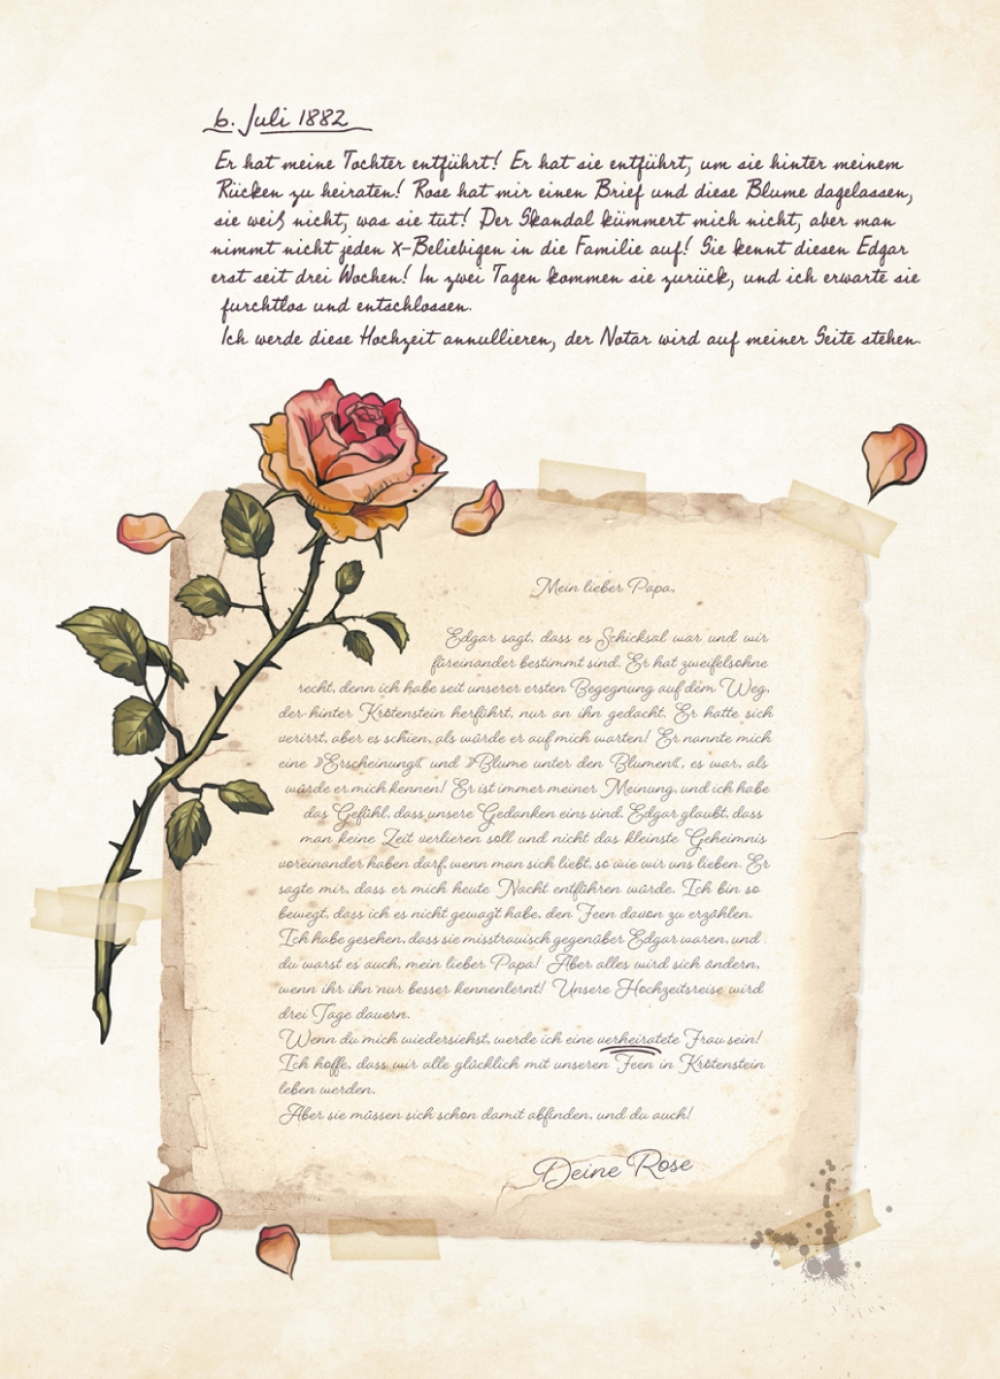 6. Juli 1882
Er hat meine Tochter entführt! Er hat sie entführt, um sie hinter meinem
Rücken zu heiraten! Rose hat mir einen Brief und diese Blume dagelassen,
sie weiß nicht, was sie tut! Der Skandal kümmert mich nicht, aber man
nimmt nicht jeden X-Beliebigen in die Familie auf! Sie kennt diesen Edgar
erst seit drei Wochen! In zwei Tagen kommen sie zurück, und ich erwarte sie
furchtlos und entschlossen.
Ich werde diese Hochzeit annullieren, der Notar wird auf meiner Seite stehen.
Mein lieber Papa,
Edgar sagt, dass es Schicksal war und wir
füreinander bestimmt sind. Er hat zweifelsohne
recht, denn ich habe seit unserer ersten Begegnung auf dem Weg,
der hinter Krötenstein herführt, nur an ihn gedacht. Er hatte sich
verirrt, aber es schien, als würde er auf mich warten! Er nannte mich
eine »Erscheinung« und »Blume unter den Blumen«, es war, als
würde er mich kennen! Er ist immer meiner Meinung, und ich habe
das Gefühl, dass unsere Gedanken eins sind. Edgar glaubt, dass
man keine Zeit verlieren soll und nicht das kleinste Geheimnis
voreinander haben darf, wenn man sich liebt, so wie wir uns lieben. Er
sagte mir, dass er mich heute Nacht entführen würde. Ich bin so
bewegt, dass ich es nicht gewagt habe, den Feen davon zu erzählen.
Ich habe gesehen, dass sie misstrauisch gegenüber Edgar waren, und
du warst es auch, mein lieber Papa! Aber alles wird sich ändern,
wenn ihr ihn nur besser kennenlernt! Unsere Hochzeitsreise wird
drei Tage dauern.
Wenn du mich wiedersiehst, werde ich eine verheiratete Frau sein!
Ich hoffe, dass wir alle glücklich mit unseren Feen in Krötenstein
leben werden.
Aber sie müssen sich schon damit abfinden, und du auch!
Deine Rose